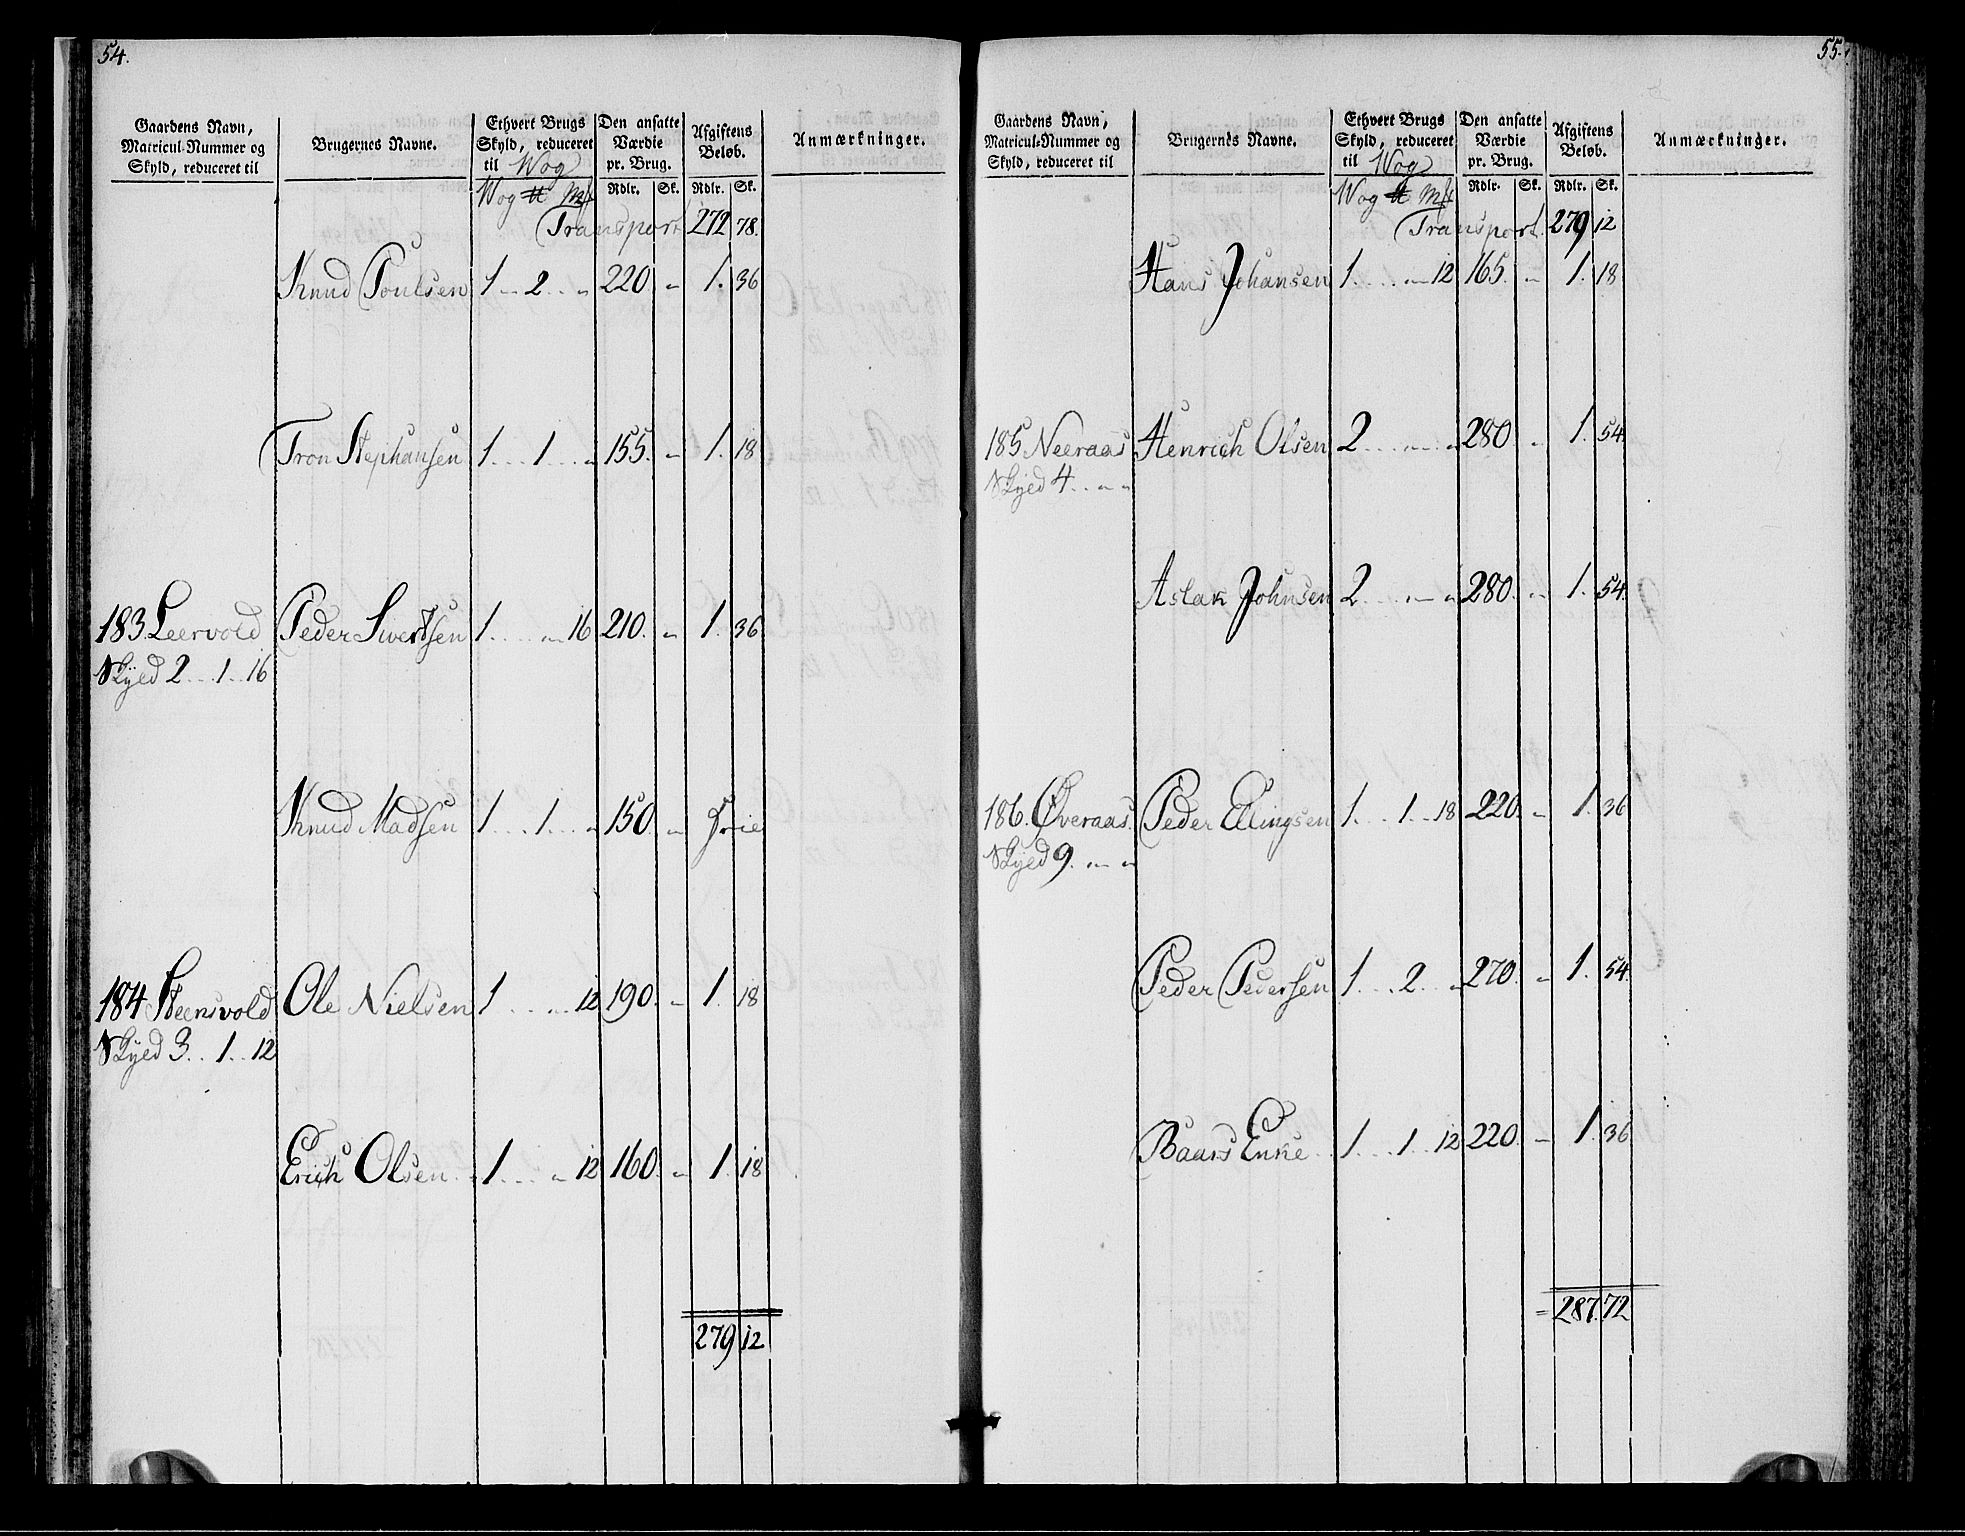 54.
Gaardens Navn, Matricul-Nummer og Skyld, reduceret til
Brugernes Navne.
Ethvert Brugs Skyld, reduceret til Wog
Den ansatte Værdie pr. Brug.
Afgiftens Beløb.
Anmærkninger.
Wog ℔ Mk Rdlr. Sk. Rdlr. Sk.
Transport 272 78.
Knud Poulsen 1 - 2 .. " 220. " 1. 36
Tron Stephansen 1 ... 1 ... " 155. " 1. 18
183 Leervold Peder Sivertsen 1 .... " 16 210. " 1. 36
Skyld 2 ... 1 .. 16
Knud Madsen 1 ... 1 ... " 150. " Frie
184 Steensvold Ole Nielsen 1 .... 12 190. " 1. 18
Skyld 3 .. 1 .. 12
Erich Olsen 1 ... " 12 160. " 1. 18
279 12
55.
Gaardens Navn, Matricul-Nummer og Skyld, reduceret til
Brugernes Navne.
Ethvert Brugs Skyld, reduceret til Wog
Den ansatte Værdie pr. Brug.
Afgiftens Beløb.
Anmærkninger.
Wog ℔ Mk Rdlr. Sk. Rdlr. Sk.
Transport. 279 12
Hans Johansen 1 .... " 12 165. " 1. 18
185 Neeraas Henrich Olsen 2 ... " .. " 280 " 1. 54
Skyld 4 .. " "
Aslak Johnsen 2 ... " " 280. " 1. 54.
186. Øveraas. Peder Ellingsen 1 ... 1 .. 18 220. " 1. 36
Skyld 9. " "
Peder Pedersen 1 ... 2 .. " 270. " 1. 54.
Baars Enke 1 ... 1 .. 12 220. " 1. 36.
287. 72